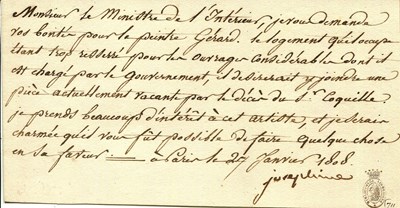 Monsieur le Ministre de l'Intérieur, je vous demande
vos bontés pour le peintre Gérard. le logement qu'il occupe
étant trop resserré pour les ouvrages considérables dont il
est chargé par le Gouvernement, il désirerait y joindre une
pièce actuellement vacant par le décès du Sr. Coqueille.
je prends beaucoup d'intérêt à cet artiste, et je serais
charmée qu'il vous fût possible de faire quelque chose
en sa faveur — à Paris le 27 Janvier 1808.
josephine